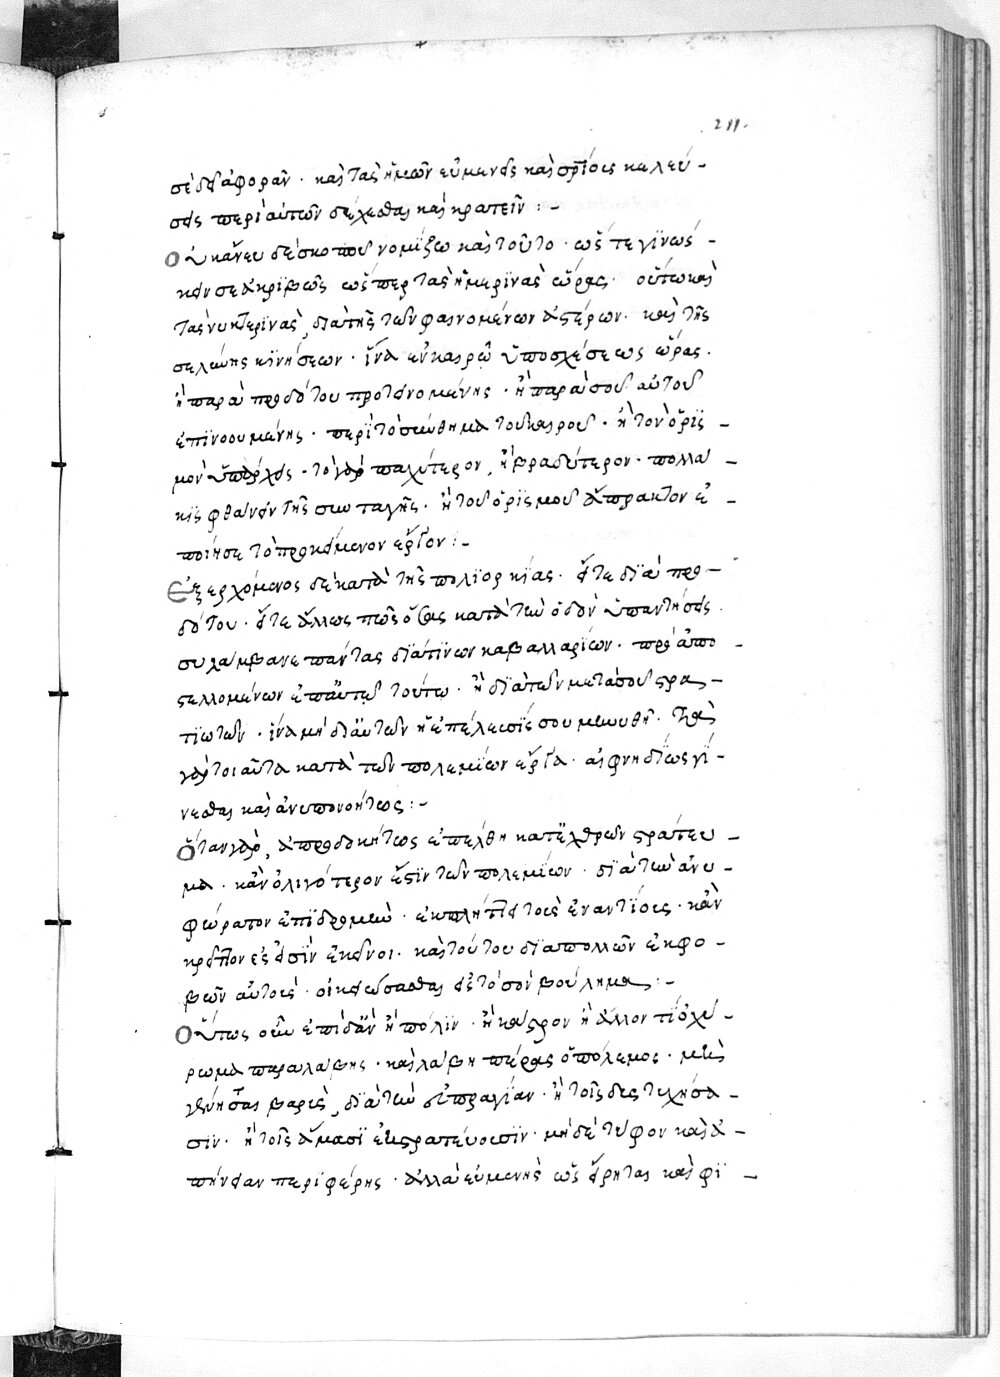 211.
σὲ διάφοραν̑ · καὶ τὰς ἡμῶν εὐμενεῖς καὶ ὁρίοις κελεύ –
σεις περὶ αὐτῶν δέχεσθαι καὶ κρατεῖν : –
Οὐκ ἄνευ δὲ σκοποῦ νομίζω καὶ τοῦτο · ὥστε γϊνώσ –
κειν σε ἀκρϊβῶς ὥσπερ τὰς ἡμερϊνὰς ὥρας · οὕτω καὶ
τὰς νυκτερϊνὰς, διὰ τῆς τῶν φαινομένων ἀστέρων · καὶ τῆς
σελήνης κϊνήσεων · ἵνα ἐν καιρῷ ὑποσχέσεως ὥρας ·
ἢ παρὰ προδότου προτεινομένης · ἢ παρὰ σοῦ αὐτοῦ
ἐπϊνοουμένης · περὶ τὸ σύνθημα τοῦ καιροῦ · ἢ τὸν ὁρϊσ –
μὸν ὑπάρχεις · τὸ γὰρ ταχύτερον, ἢ βραδύτερον · πολλά –
κϊς φθάνειν τῆς συνταγῆς · ἢ τοῦ ὁρϊσμοῦ ἄπρακτον ἐ –
ποίησε τὸ προκείμενον ἔργον : –
Ἐξερχόμενος δὲ κατὰ τῆς πολϊορκίας · εἴτε δϊὰ προ –
δότου · εἴτε ἄλλως πῶς ὅσοις κατὰ τὴν ὁδὸν ὑπαντήσεις ·
συλάμβανε πάντας δϊά τϊνων καβαλλαρίων · προαπο –
στελλομένων ἐπ' αὐτῷ τούτω · ἢ δϊὰ τῶν μετὰ σοῦ στρα –
τϊωτῶν · ἵνα μὴ δι' αὐτῶν ἡ ἐπέλευσίς σου μηνυθῇ · τὰ
γάρ τοιαῦτα κατὰ τῶν πολεμίων ἔργα · αἰφνηδίως γί –
νεσθαι καὶ ἀνυπονοήτως : –
Ὅταν γὰρ, ἀπροσδοκήτως ἐπέλθη κατ' ἐχθρῶν στράτευ –
μα · κἂν ὀλιγότερον ἔστϊν τῶν πολεμίων · δϊὰ τὴν ἀνυ –
φώρατον ἐπϊδρομὴν · ἐκπλήττει τοὺς ἐναντίους · κἂν
κρείττονες εἰσὶν ἐκεῖνοι · καὶ τούτου δϊαπολλῶν ἐκφο –
βῶν αὐτοὺς · οἰκειώσασθαι εἰς τὸ σὸν βούλημα : –
Ὅπως οὖν ἐπειδὰν ἢ πόλϊν · ἢ κάστρον ἢ ἄλλον τϊ ὀχύ –
ρωμα παραλάβης · καὶ λάβη πέρας ὁ πόλεμος · μὴ
γένησαι βαρὺς, δϊὰ τὴν εὐπραγίαν · ἢ τοῖς δεστυχήσα –
σϊν · ἢ τοῖς ἅμα σοὶ ἐκστρατεύουσϊν · μηδὲ τῦφον καὶ ἀ –
πήνειαν περϊφέρης · ἀλλὰ εὐμενὴς ὡς εἴρηται καὶ φϊ –